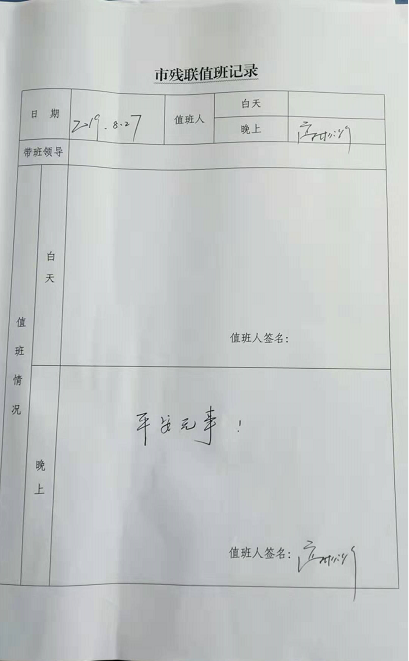 市残联值班记录
日 期 2019.8.27 值班人 白天
晚上
带班领导
值班情况
白天
值班人签名:
晚上
平安无事!
值班人签名: